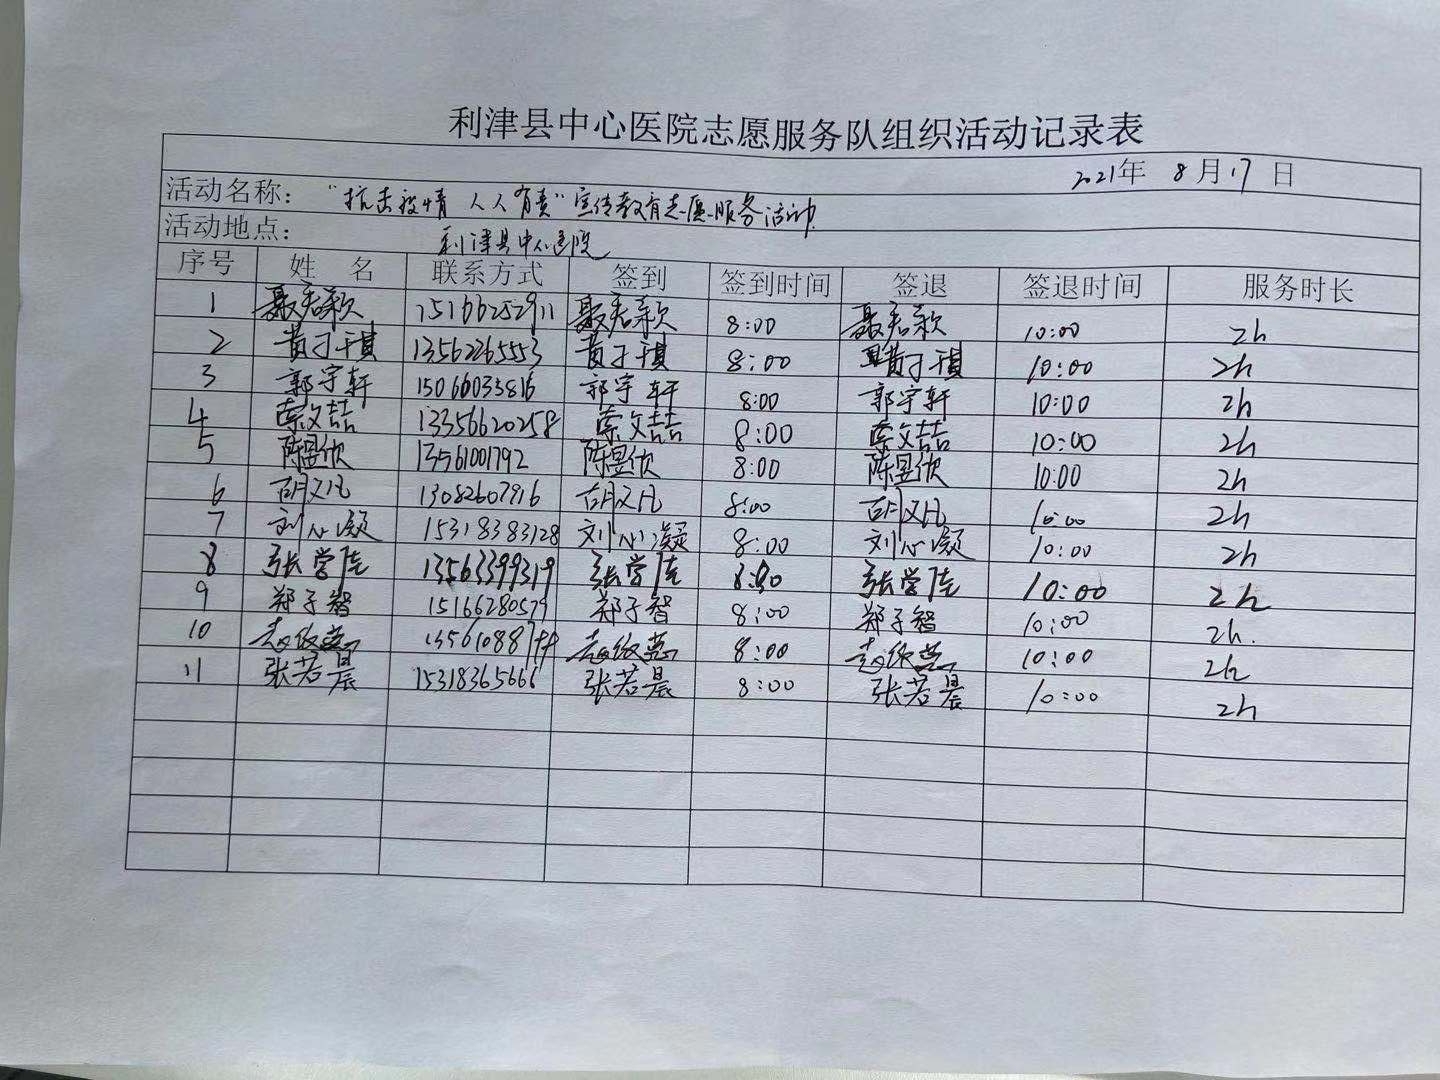 利津县中心医院志愿服务队组织活动记录表
2021年 8月17日
活动名称： "抗击疫情 人人有责"宣传教育志愿服务活动
活动地点： 利津县中心医院
序号 姓 名 联系方式 签到 签到时间 签退 签退时间 服务时长
1 聂君颖 15166252911 聂君颖 8:00 聂君颖 10:00 2h
2 黄子琪 13562265553 黄子琪 8:00 黄子琪 10:00 2h
3 郭宇轩 15066033816 郭宇轩 8:00 郭宇轩 10:00 2h
4 文喆 13356620258 文喆 8:00 文喆 10:00 2h
5 陈昱欣 13561001792 陈昱欣 8:00 陈昱欣 10:00 2h
6 胡又凡 13082607916 胡又凡 8:00 胡又凡 10:00 2h
7 刘心凝 15318383128 刘心凝 8:00 刘心凝 10:00 2h
8 张学佳 13563399319 张学佳 8:00 张学佳 10:00 2h
9 郑子智 15166280579 郑子智 8:00 郑子智 10:00 2h.
10 赵 8:00 赵 10:00 2h
11 张若晨 15318365666 张若晨 8:00 张若晨 10:00 2h